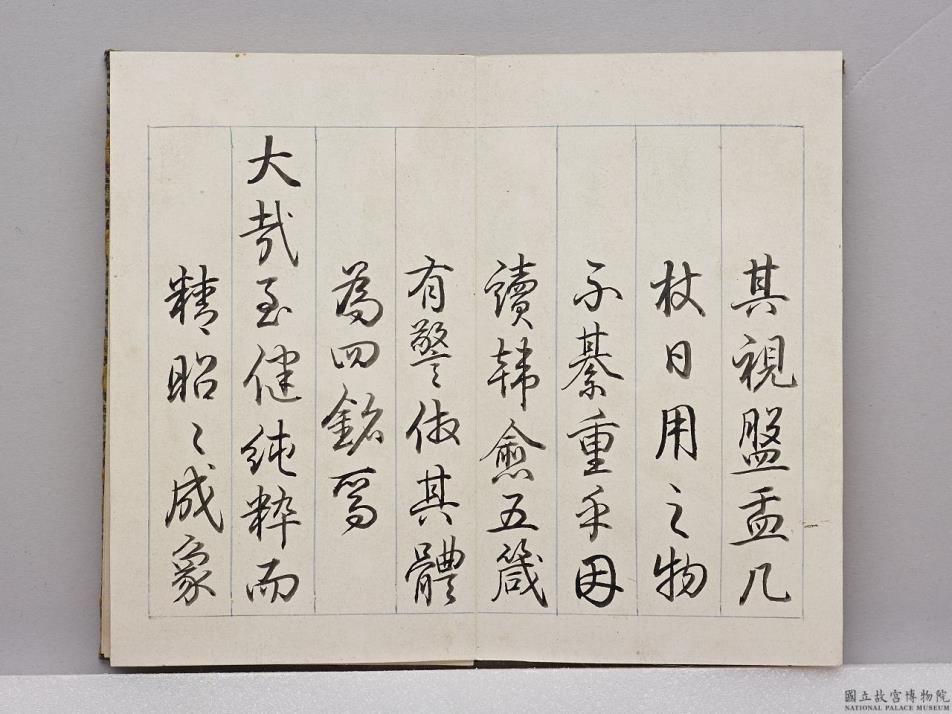 其視盤盂几
杖日用之物
不綦重乎因
讀韓愈五箴
有警倣其體
為四銘焉
大哉至健純粹而
精昭〻成象
國立故宮博物院
NATIONAL PALACE MUSEUM